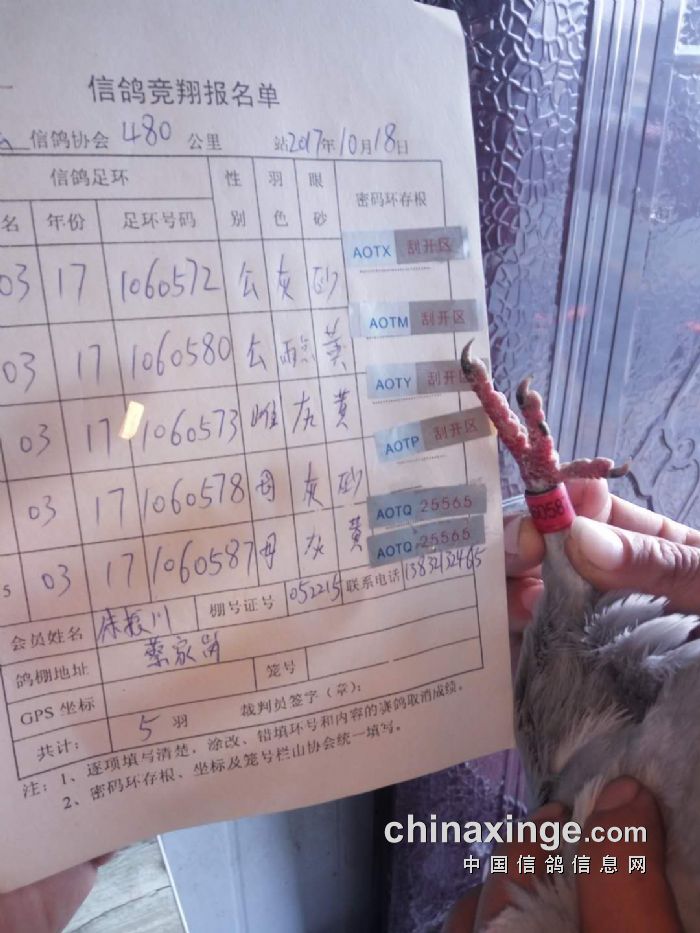 信鸽竞翔报名单
信鸽协会 480 公里 站2017年10月18日
信鸽足环 性别 羽色 眼砂 密码环存根
名 年份 足环号码
03 17 1060572 公 灰 砂 AOTX 刮开区
03 17 1060580 公 黄 AOTM 刮开区
03 17 1060573 雌 灰 黄 AOTY 刮开区
AOTP 刮开区
03 17 1060578 母 灰 砂 AOTQ 25565
5 03 17 1060587 母 灰 黄 AOTQ 25565
会员姓名 棚号证号 052215 联系电话 13832132465
鸽棚地址 蔡家岗
GPS 坐标 笼号
共计: 5 羽 裁判员签字(章):
注:1、逐项填写清楚,涂改、错填环号和内容的赛鸽取消成绩。
2、密码环存根、坐标及笼号栏由协会统一填写。
6058
chinaxinge.com
中国信鸽信息网